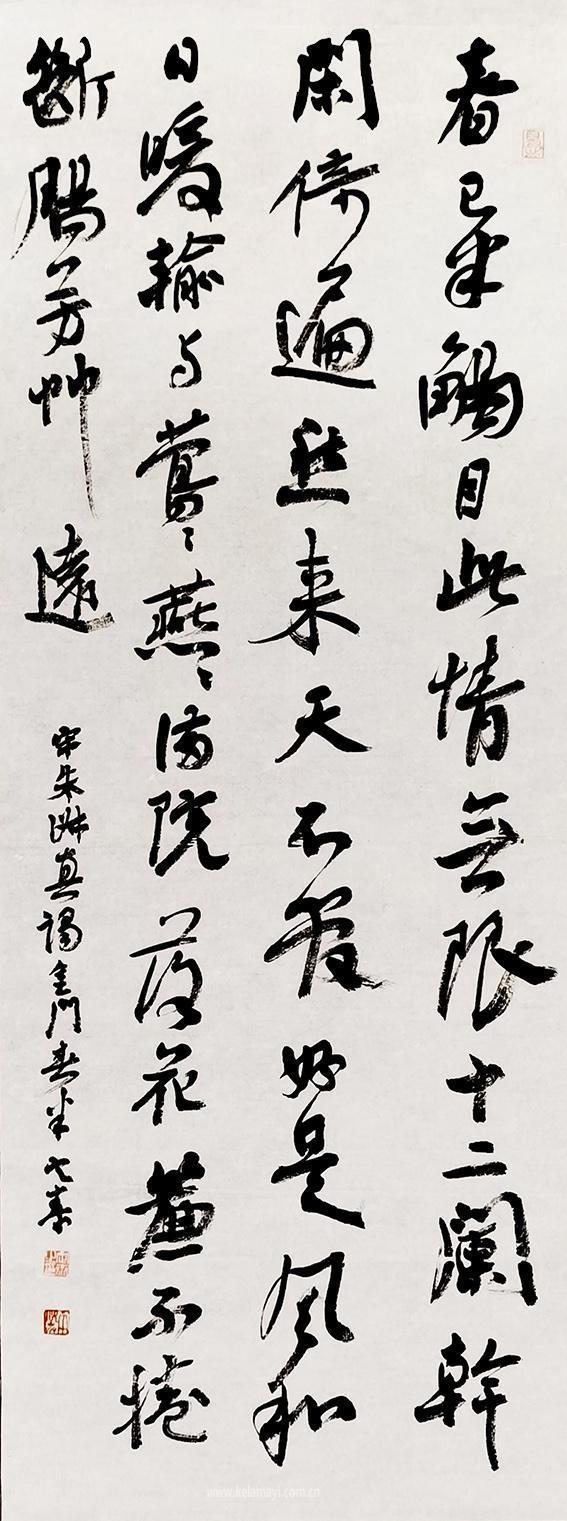 春已半觸目此情無限十二闌幹
閑倚遍愁来天不管好是風和
日暖輸与鶯々燕々滿院落花簾不捲
斷腸芳艸遠
宋朱淑真謁金門春半
www.kelamayi.com.cn